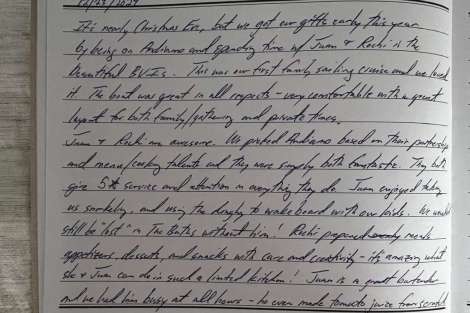 12/23/2024
It's nearly Christmas Eve, but we got our gifts early this year
by being on Ardiamo and spending time w/ Juan & Rochi in the
Beautiful BVIs. This was our first family sailing cruise and we loved
it. The boat was great in all respects - very comfortable with a great
layout for both family/gathering and private times.
Juan & Rochi are awesome. We picked Ardiamo based on their partnership
and menu/cooking talents and they were simply both fantastic. They both
give 5* service and attention in everything they do. Juan enjoyed taking
us snorkeling, and using the dinghy to wakeboard with our kids. We would
still be "lost" in The Baths without him! Rochi prepared meals
appetizers, desserts, and snacks with care and creativity - it's amazing what
she & Juan can do in such a limited kitchen! Juan is a great bartender
and we had him busy at all hours - he even made tomato juice from scratch